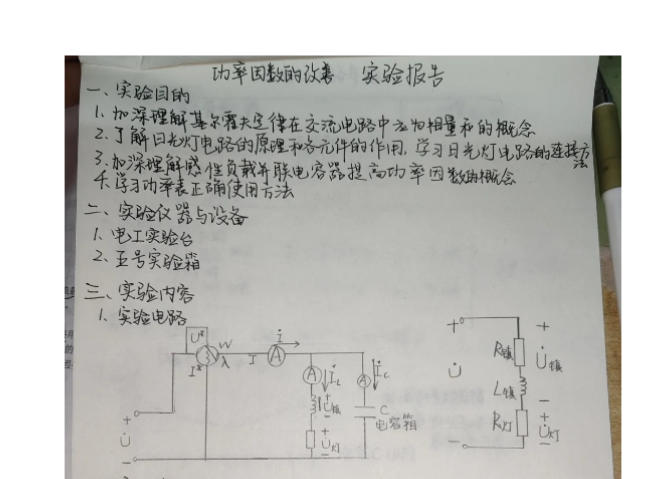 功率因数的改善 实验报告
一、实验目的
1. 加深理解基尔霍夫定律在交流电路中应为相量和的概念
2. 了解日光灯电路的原理和各元件的作用,学习日光灯电路的连接方法
3. 加深理解感性负载并联电容器提高功率因数的概念
4. 学习功率表正确使用方法
二、实验仪器与设备
1. 电工实验台
2. 五号实验箱
三、实验内容
1. 实验电路
U* W
I* λ I A İ
A İL
A İc
+ U̇镇 -
+ U̇灯 -
C
电容箱
+
U̇
-
+
U̇
-
R镇
L镇
R灯
+
U̇镇
-
+
U̇灯
-